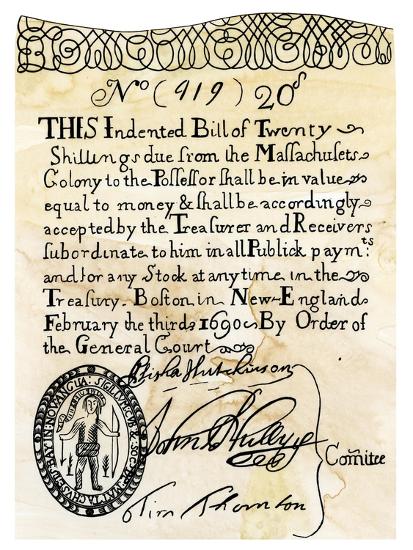 No (919) 20s
THIS Indented Bill of Twenty
Shillings due from the Massachusets
Colony to the Possessor shall be in value
equal to money & shall be accordingly
accepted by the Treasurer and Receivers
subordinate to him in all Publick paymts:
and for any Stock at any time in the
Treasury. Boston in New-England
February the third 1690 By Order of
the General Court
Elisha Hutchinson
John Walley
Tim Thornton
Comitee